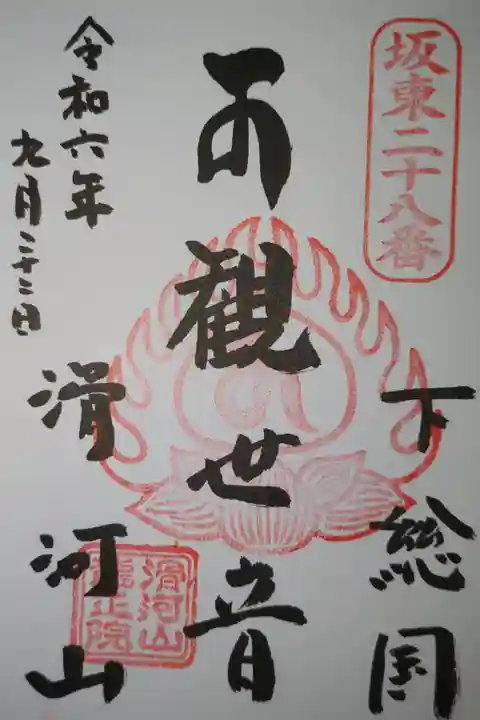 坂東二十八番
下総国
観世音
滑河山
滑河山
龍正院
令和六年
九月二十二日